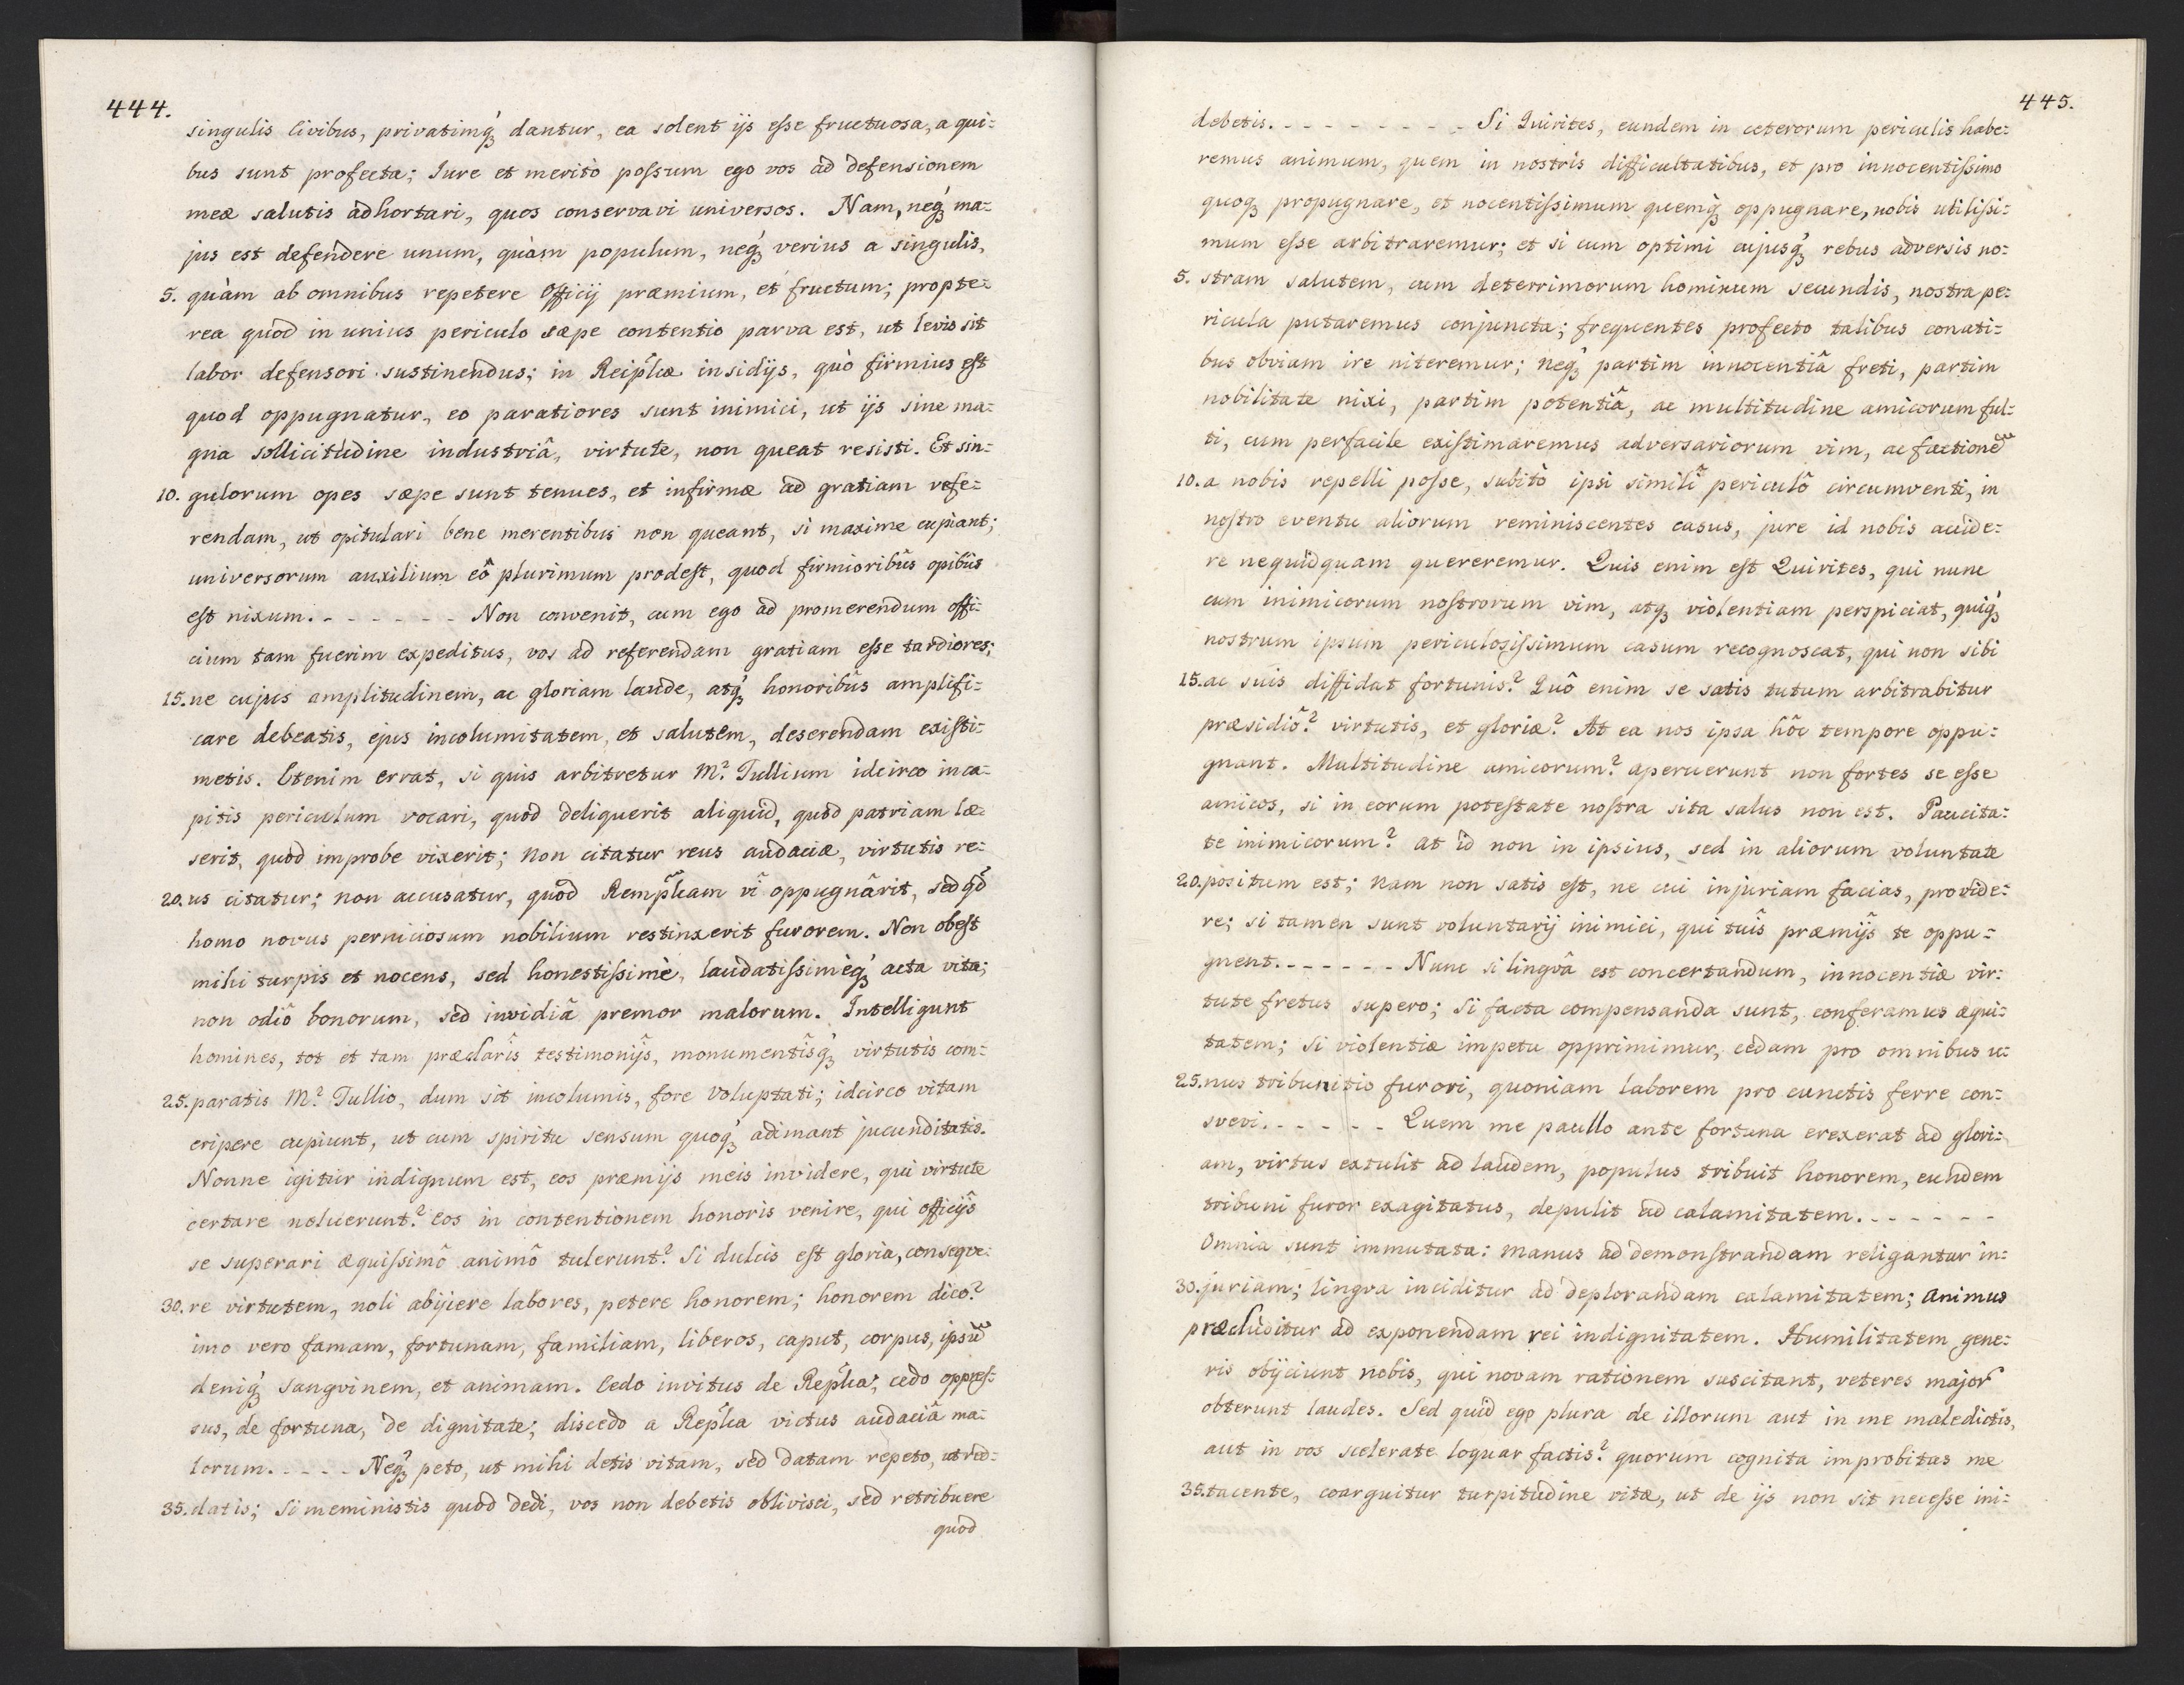 444.
singulis Civibus, privatimq́ꝫ dantur, ea solent ijs eſse fructuosa, a qui:
bus sunt profecta; Iure et meritò poſsum ego vos ad defensionem
meæ salutis adhortari, quos conservavi universos. Nam, neq́ꝫ ma:
jus est defendere unum, quàm populum, neq́ꝫ verius a singulis,
5. quàm ab omnibus repetere Officij præmium, et fructum; propte:
rea quod in unius periculo sæpe contentio parva est, ut levis sit
labor defensori sustinendus; in Reip̃licæ insidijs, quò firmius eſt
quod oppugnatur, eo paratiores sunt inimici, ut ijs sine ma:
gna sollicitudine industriâ, virtute, non queat resisti. Et sin:
10. gulorum opes sæpe sunt tenues, et infirmæ ad gratiam refe:
rendam, ut opitulari bene merentibus non queant, si maxime cupiant;
universorum auxilium eô plurimum prodeſt, quod firmioribûs opibûs
eſt nixum. - - - - - - - Non convenit, cum ego ad promerendum offi:
cium tam fuerim expeditus, vos ad referendam gratiam eſse tardiores;
15. ne cujus amplitudinem, ac gloriam laude, atq́ꝫ honoribûs amplifi:
care debeatis, ejus incolumitatem, et salutem, deserendam exiſti:
metis. Etenim errat, si quis arbitretur M.? Tullium idcirco in ca:
pitis periculum vocari, quod deliquerit aliquid, quod patriam læ:
serit, quòd improbe vixerit; Non citatur reus audaciæ, virtutis re:
20. us citatur; non accusatur, quod Remp̃licam vî oppugnârit, sed qd̃
homo novus perniciosum nobilium restinxerit furorem. Non obeſt
mihi turpis et nocens, sed honestiſsimè, laudatiſsimèq́ꝫ acta vita;
non odiô bonorum, sed invidiâ premor malorum. Intelligunt
homines, tot et tam præclarîs testimonijs, monumentîsq́ꝫ virtutis com:
25. paratis M.? Tullio, dum sit incolumis, fore Voluptati; idcirco vitam
eripere cupiunt, ut cum spiritu sensum quoq́ꝫ adimant jucunditatis.
Nonne igitur indignum est, eos præmijs meis invidere, qui virtute
certare noluerunt? eos in contentionem honoris venire, qui officijs
se superari æquiſsimô animô tulerunt? Si dulcis eſt gloria, conseqve:
30. re virtutem, noli abijcere labores, petere honorem; honorem dico?
imo vero famam, fortunam, familiam, liberos, caput, corpus, ipsũ
deniq́ꝫ sangvinem, et animam. Cedo invitus de Rep̃lica; cedo oppreſ:
sus, de fortuna, de dignitate; discedo a Rep̃lica victus audaciâ ma:
lorum. - - - - Neq́ꝫ peto, ut mihi detis vitam, sed datam repeto, ut red:
35. datis; Si meministis quod dedi, vos non debetis oblivisci, sed retribuere
quod
445.
debetis. - - - - - - - - - Si Quirites, eundem in ceterorum periculis habe:
remus animum, quem in nostris difficultatibus, et pro innocentiſsimo
quoqꝫ propugnare, et nocentiſsimum quemq́ꝫ oppugnare, nobis utiliſsi:
mum eſse arbitraremur; et si cum optimi cujusq́ꝫ rebus adversis no:
5. stram salutem, cum deterrimorum hominum secundis, nostra pe:
ricula putaremus conjuncta; frequentes profecto talibus conati:
bus obviam ire niteremur; neq́ꝫ partim innocentiâ freti, partim
nobilitate nixi, partim potentiâ, ac multitudine amicorum ful:
ti, cum perfacile exiſtimaremus adversariorum vim, ac factionẽ
10. a nobis repelli poſse, subitò ipsi similî periculô circumventi, in
noſtro eventu aliorum reminiscentes casus, jure id nobis accide:
re nequidquam quereremur. Quis enim eſt Quirites, qui nunc
cum inimicorum noſtrorum vim, atqꝫ violentiam perspiciat, quiq́ꝫ
nostrum ipsum periculosiſsimum casum recognoscat, qui non sibi
15. ac suis diffidat fortunis? Quô enim se satis tutum arbitrabitur
præsidiô? virtutis, et gloriæ? At ea nos ipsa hôc tempore oppu:
gnant. Multitudine amicorum? aperuerunt non fortes se eſse
amicos, si in eorum poteſtate noſtra sita salus non est. Paucita:
te inimicorum? at id non in ipsius, sed in aliorum voluntate
20. positum est; nam non satis eſt, ne cui injuriam facias, provide:
re; si tamen sunt voluntarij inimici, qui tuîs præmijs te oppu:
gnent. - - - - - - Nunc si lingvâ est concertandum, innocentiæ vir:
tute fretus supero; Si facta compensanda sunt, conferamus æqui:
tatem; Si violentiæ impetu opprimimur, cedam pro omnibus u:
25. nus tribunitio furori, quoniam laborem pro cunctis ferre con:
svevi. - - - - - Quem me paullo ante fortuna erexerat ad glori:
am, virtus extulit ad laudem, populus tribuit honorem, eundem
tribuni furor exagitatus, depulit ad calamitatem. - - - - - -
Omnia sunt immutata: manus ad demonſtrandam religantur in:
30. juriam; lingva inciditur ad deplorandam calamitatem; Animus
præcluditur ad exponendam rei indignitatem. Humilitatem gene:
ris obijciunt nobis, qui novam rationem suscitant, veteres major̃
obterunt laudes. Sed quid ego plura de illorum aut in me maledictis,
aut in vos scelerate loquar factis? quorum cognita improbitas me
35. tacente, coarguitur turpitudine vitæ, ut de ijs non sit neceſse ini: